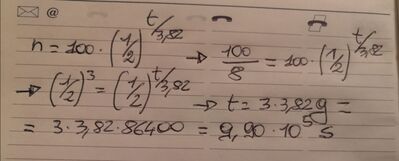 @
n = 100 · (1/2)^t/3,82 → 100/8 = 100 · (1/2)^t/3,82
→ (1/2)^3 = (1/2)^t/3,82 → t = 3 · 3,82 g =
= 3 · 3,82 · 86400 = 9,90 · 10^5 s